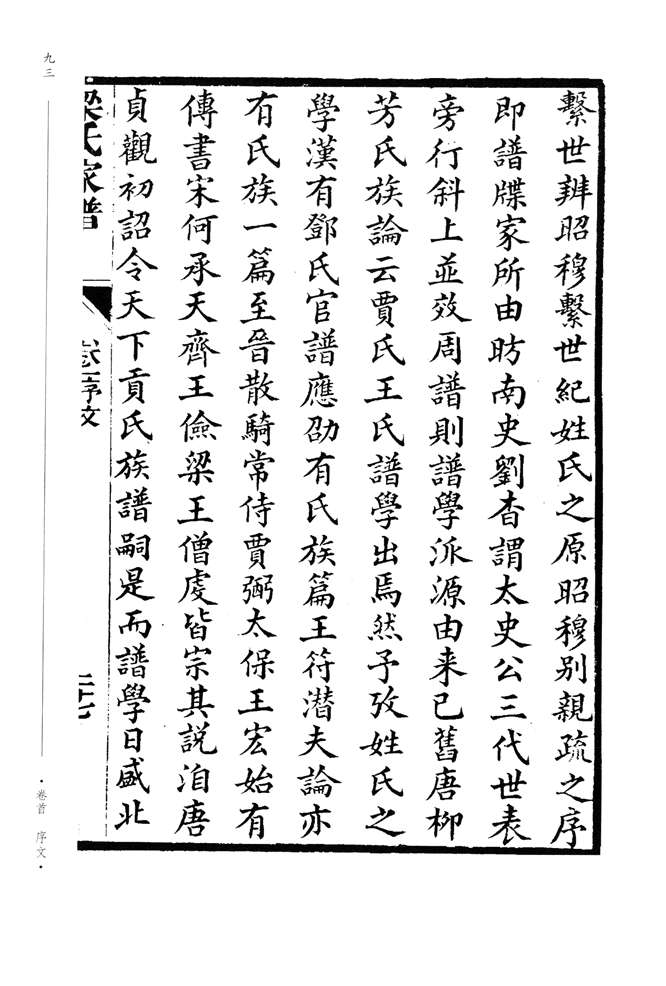 繫世辨昭穆繫世紀姓氏之原昭穆别親疏之序
即譜牒家所由昉南史劉杳謂太史公三代世表
旁行斜上並效周譜則譜學派源由来已舊唐柳
芳氏族論云賈氏王氏譜學出焉然予攷姓氏之
學漢有鄧氏官譜應劭有氏族篇王符潜夫論亦
有氏族一篇至晉散騎常侍賈弼太保王宏始有
傳書宋何承天齊王儉梁王僧虔皆宗其說洎唐
貞觀初詔令天下貢氏族譜嗣是而譜學日盛北
梁氏家譜
卷一序文
二十七
九三
·卷首 序文·